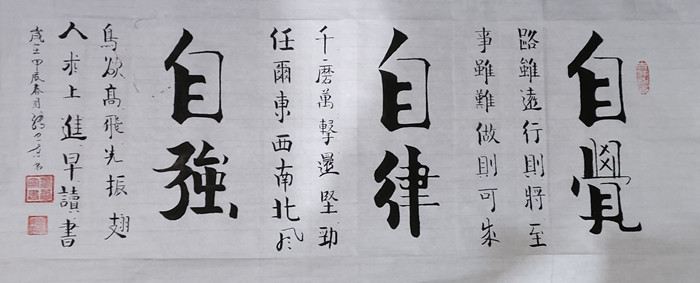 自覺
路雖遠行則將至
事雖難做則可成
自律
千磨萬擊還堅勁
任爾東西南北風
自強
鳥欲高飛先振翅
人求上進早讀書
歲在甲辰春月